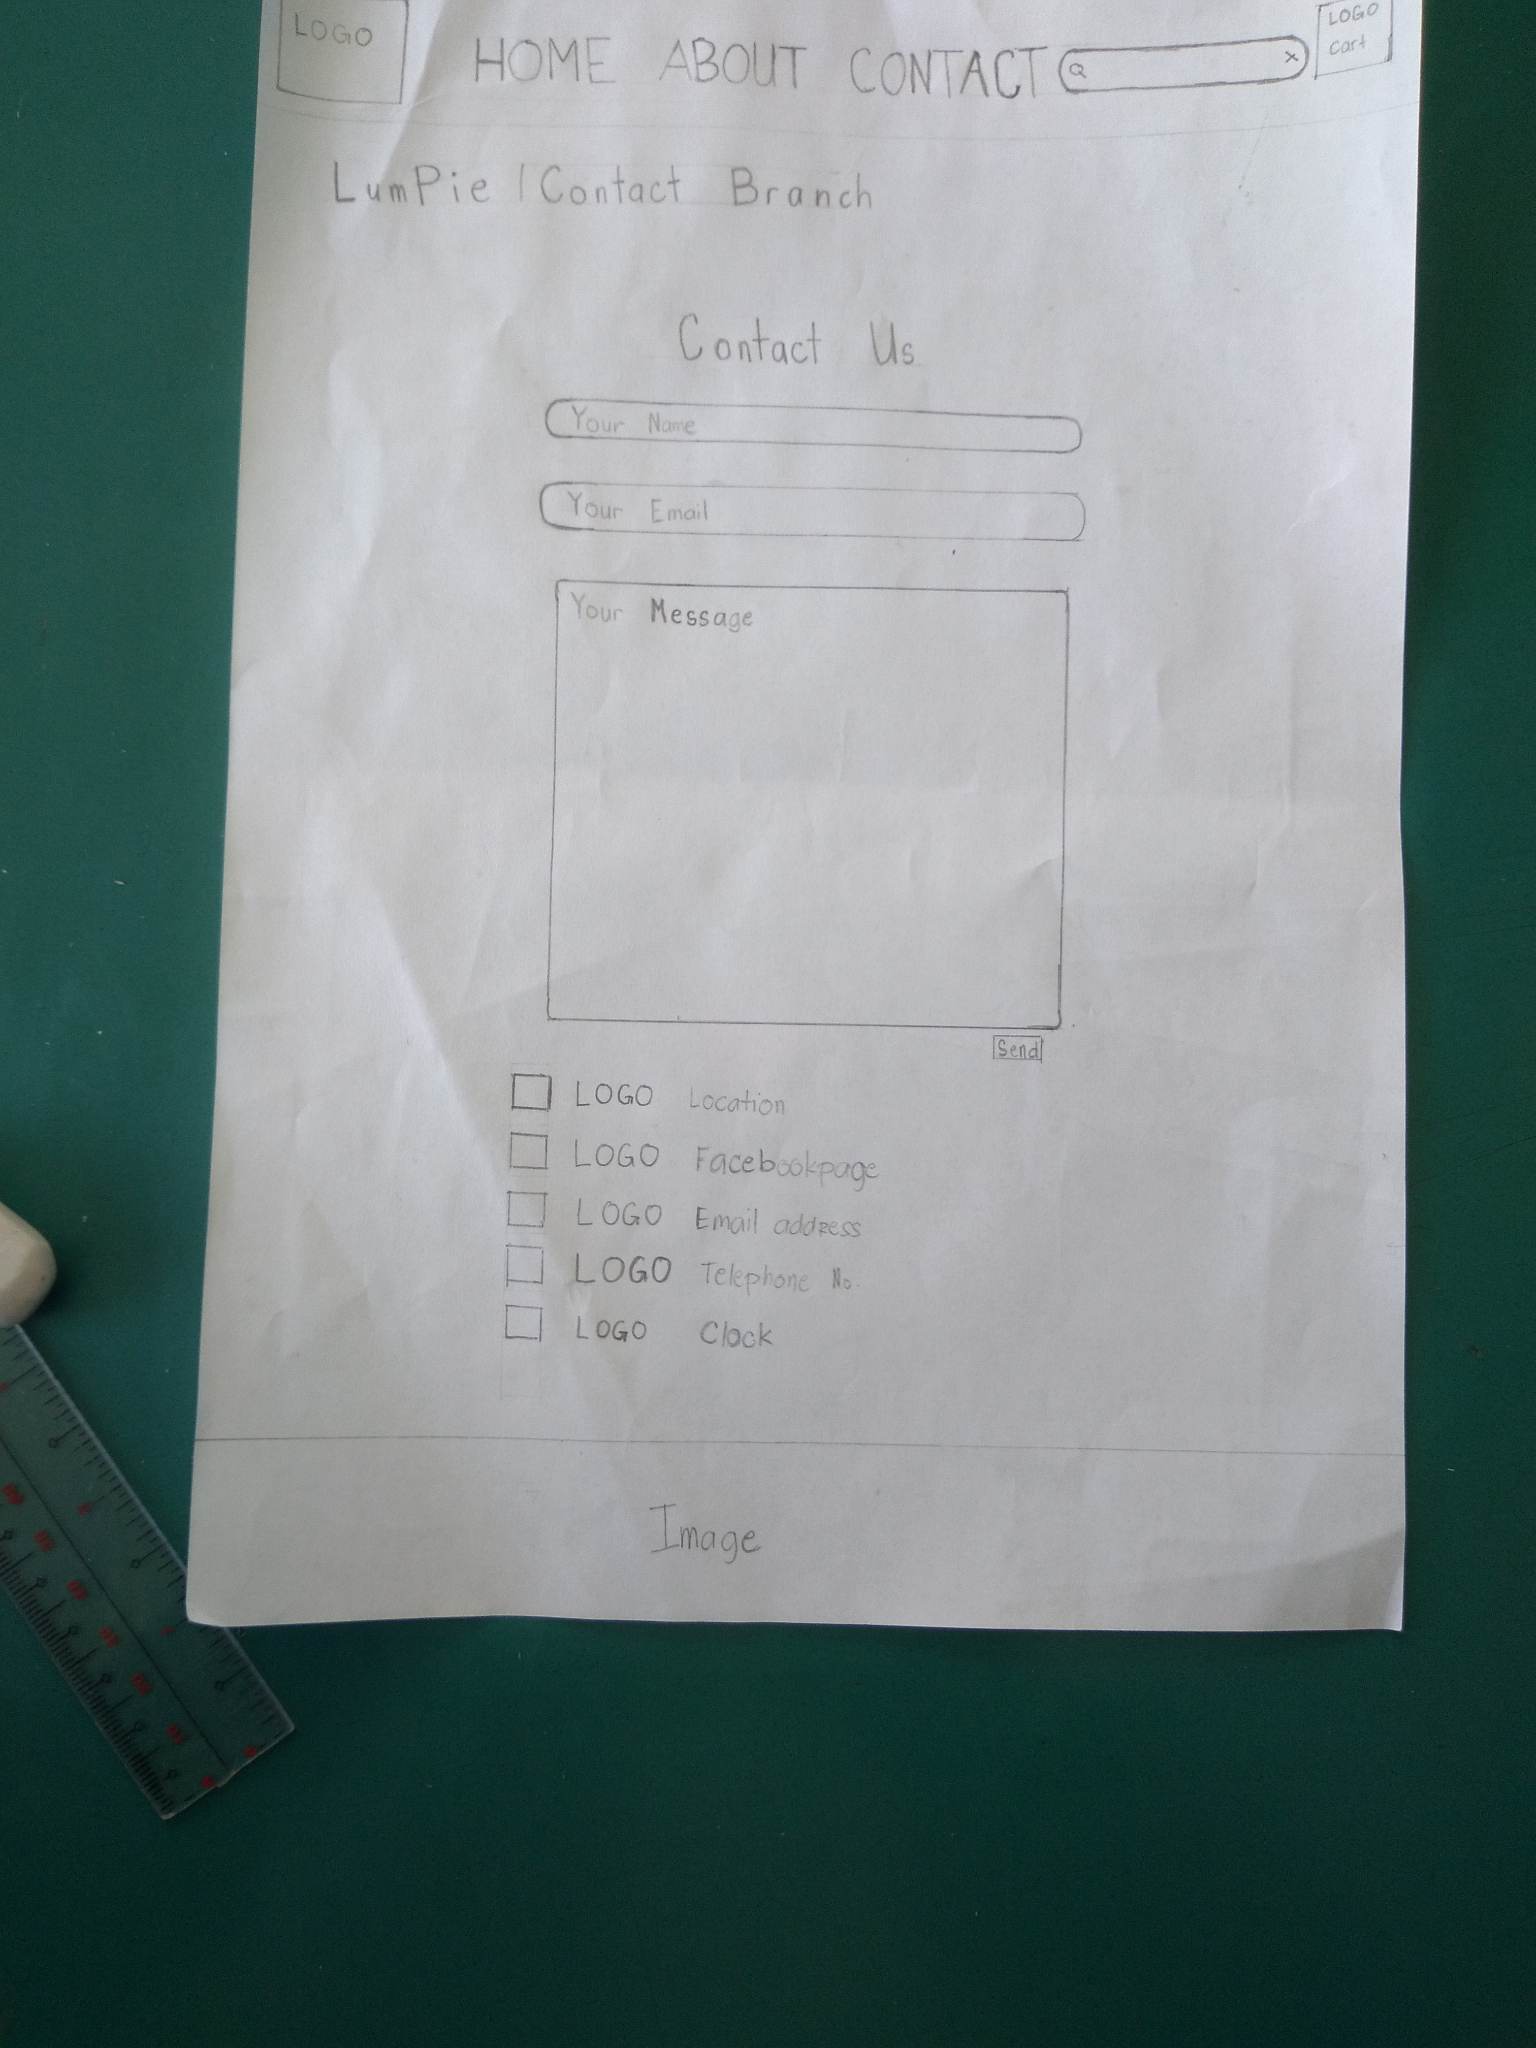 LOGO HOME ABOUT CONTACT LOGO
cart
LumPie | Contact Branch
Contact Us
Your Name
Your Email
Your Message
Send
LOGO Location
LOGO Facebookpage
LOGO Email address
LOGO Telephone No.
LOGO Clock
Image